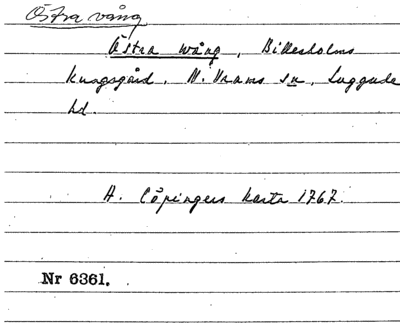 Östra vång
Östra wång, Billesholms
kungsgård, N. Vrams sn, Luggude
hd.
A. Cöpingers karta 1767.
Nr 6361.